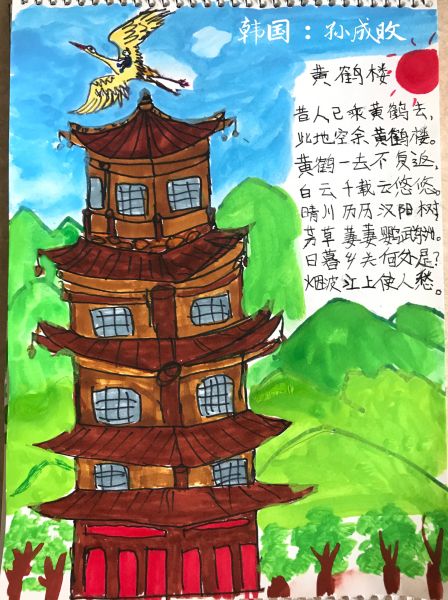 韩国：孙成旼
黄鹤楼
昔人已乘黄鹤去，
此地空余黄鹤楼。
黄鹤一去不复返，
白云千载云悠悠。
晴川历历汉阳树
芳草萋萋鹦鹉洲。
日暮乡关何处是？
烟波江上使人愁。